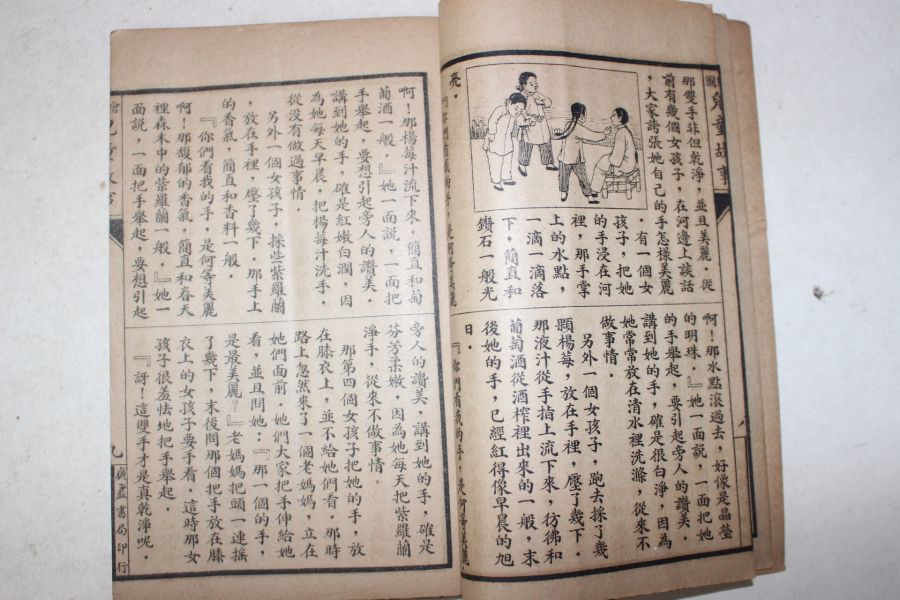 圖
兒童故事
那雙手非但乾淨，並且美麗．從
前有幾個女孩子，在河邊上談話
，大家誇張她自己的手怎樣美麗
．有一個女
孩子，把她
的手浸在河
裡，那手掌
上的水點，
一滴一滴落
下，簡直和
鑽石一般光
亮．
『你們看我的手，是何等美麗
啊！那水點滾過去，好像是晶瑩
的明珠．』她一面說，一面把她
的手舉起，要引起旁人的讚美．
講到她的手，確是很白淨，因為
她常常放在清水裡洗滌，從來不
做事情．
另外一個女孩子，跑去採了幾
顆楊莓，放在手裡，壓了幾下．
那液汁從手指上流下來，彷彿和
葡萄酒從酒榨裡出來的一般，末
後她的手，已經紅得像早晨的旭
日．
『你們看我的手，是何等美麗
八
啊！那楊莓汁流下來，簡直和萄
葡酒一般．』她一面說，一面把
手舉起，要想引起旁人的讚美．
講到她的手，確是紅嫩白潤，因
為她每天早晨，把楊莓汁洗手，
從沒有做過事情．
另外一個女孩子，採些紫羅蘭
，放在手裡，壓了幾下．那手上
的香氣，簡直和香料一般．
『你們看我的手，是何等美麗
啊！那馥郁的香氣，簡直和春天
裡森木中的紫羅蘭一般．』她一
面說，一面把手舉起，要想引起
旁人的讚美．講到她的手，確是
芬芳柔嫩，因為她每天把紫羅蘭
淨手，從來不做事情．
那第四個女孩子把她的手，放
在膝衣上，並不給她們看．那時
路上忽然來了一個老媽媽，立在
她們面前．她們大家把手伸給她
看，並且問她：『那一個的手，
是最美麗？』老媽媽把頭一連搖
了幾下，末後問那個把手放在膝
衣上的女孩子要手看．這時那女
孩子很羞怯地把手舉起．
『呀！這雙手才是真乾淨呢．
繪
九
廣益書局印行